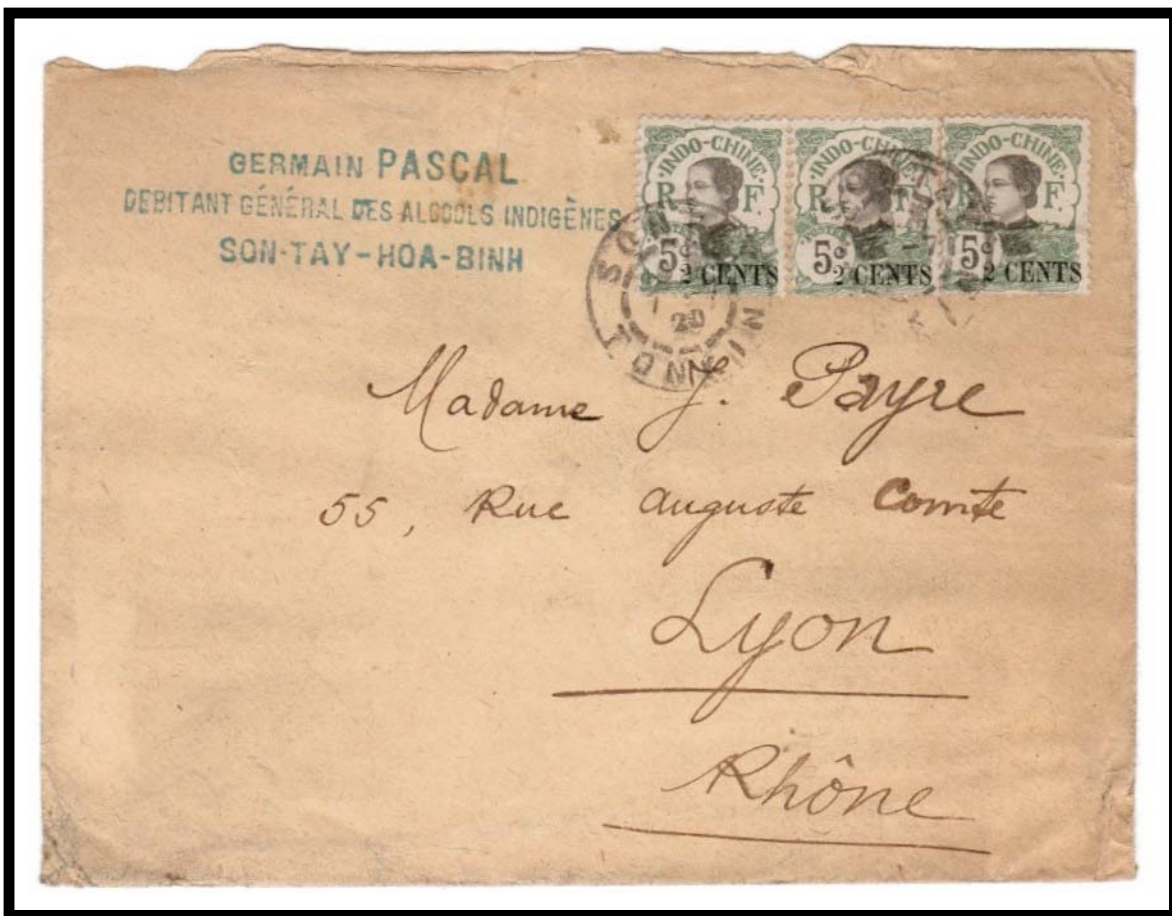 GERMAIN PASCAL
DEBITANT GÉNÉRAL DES ALCOOLS INDIGÈNES
SON-TAY-HOA-BINH
INDO-CHINE
R F
5c
2 CENTS
INDO-CHINE
R F
5c
2 CENTS
INDO-CHINE
R F
5c
2 CENTS
SONTAY
20
TONKIN
Madame J. Payre
55, Rue Auguste Comte
Lyon
Rhône